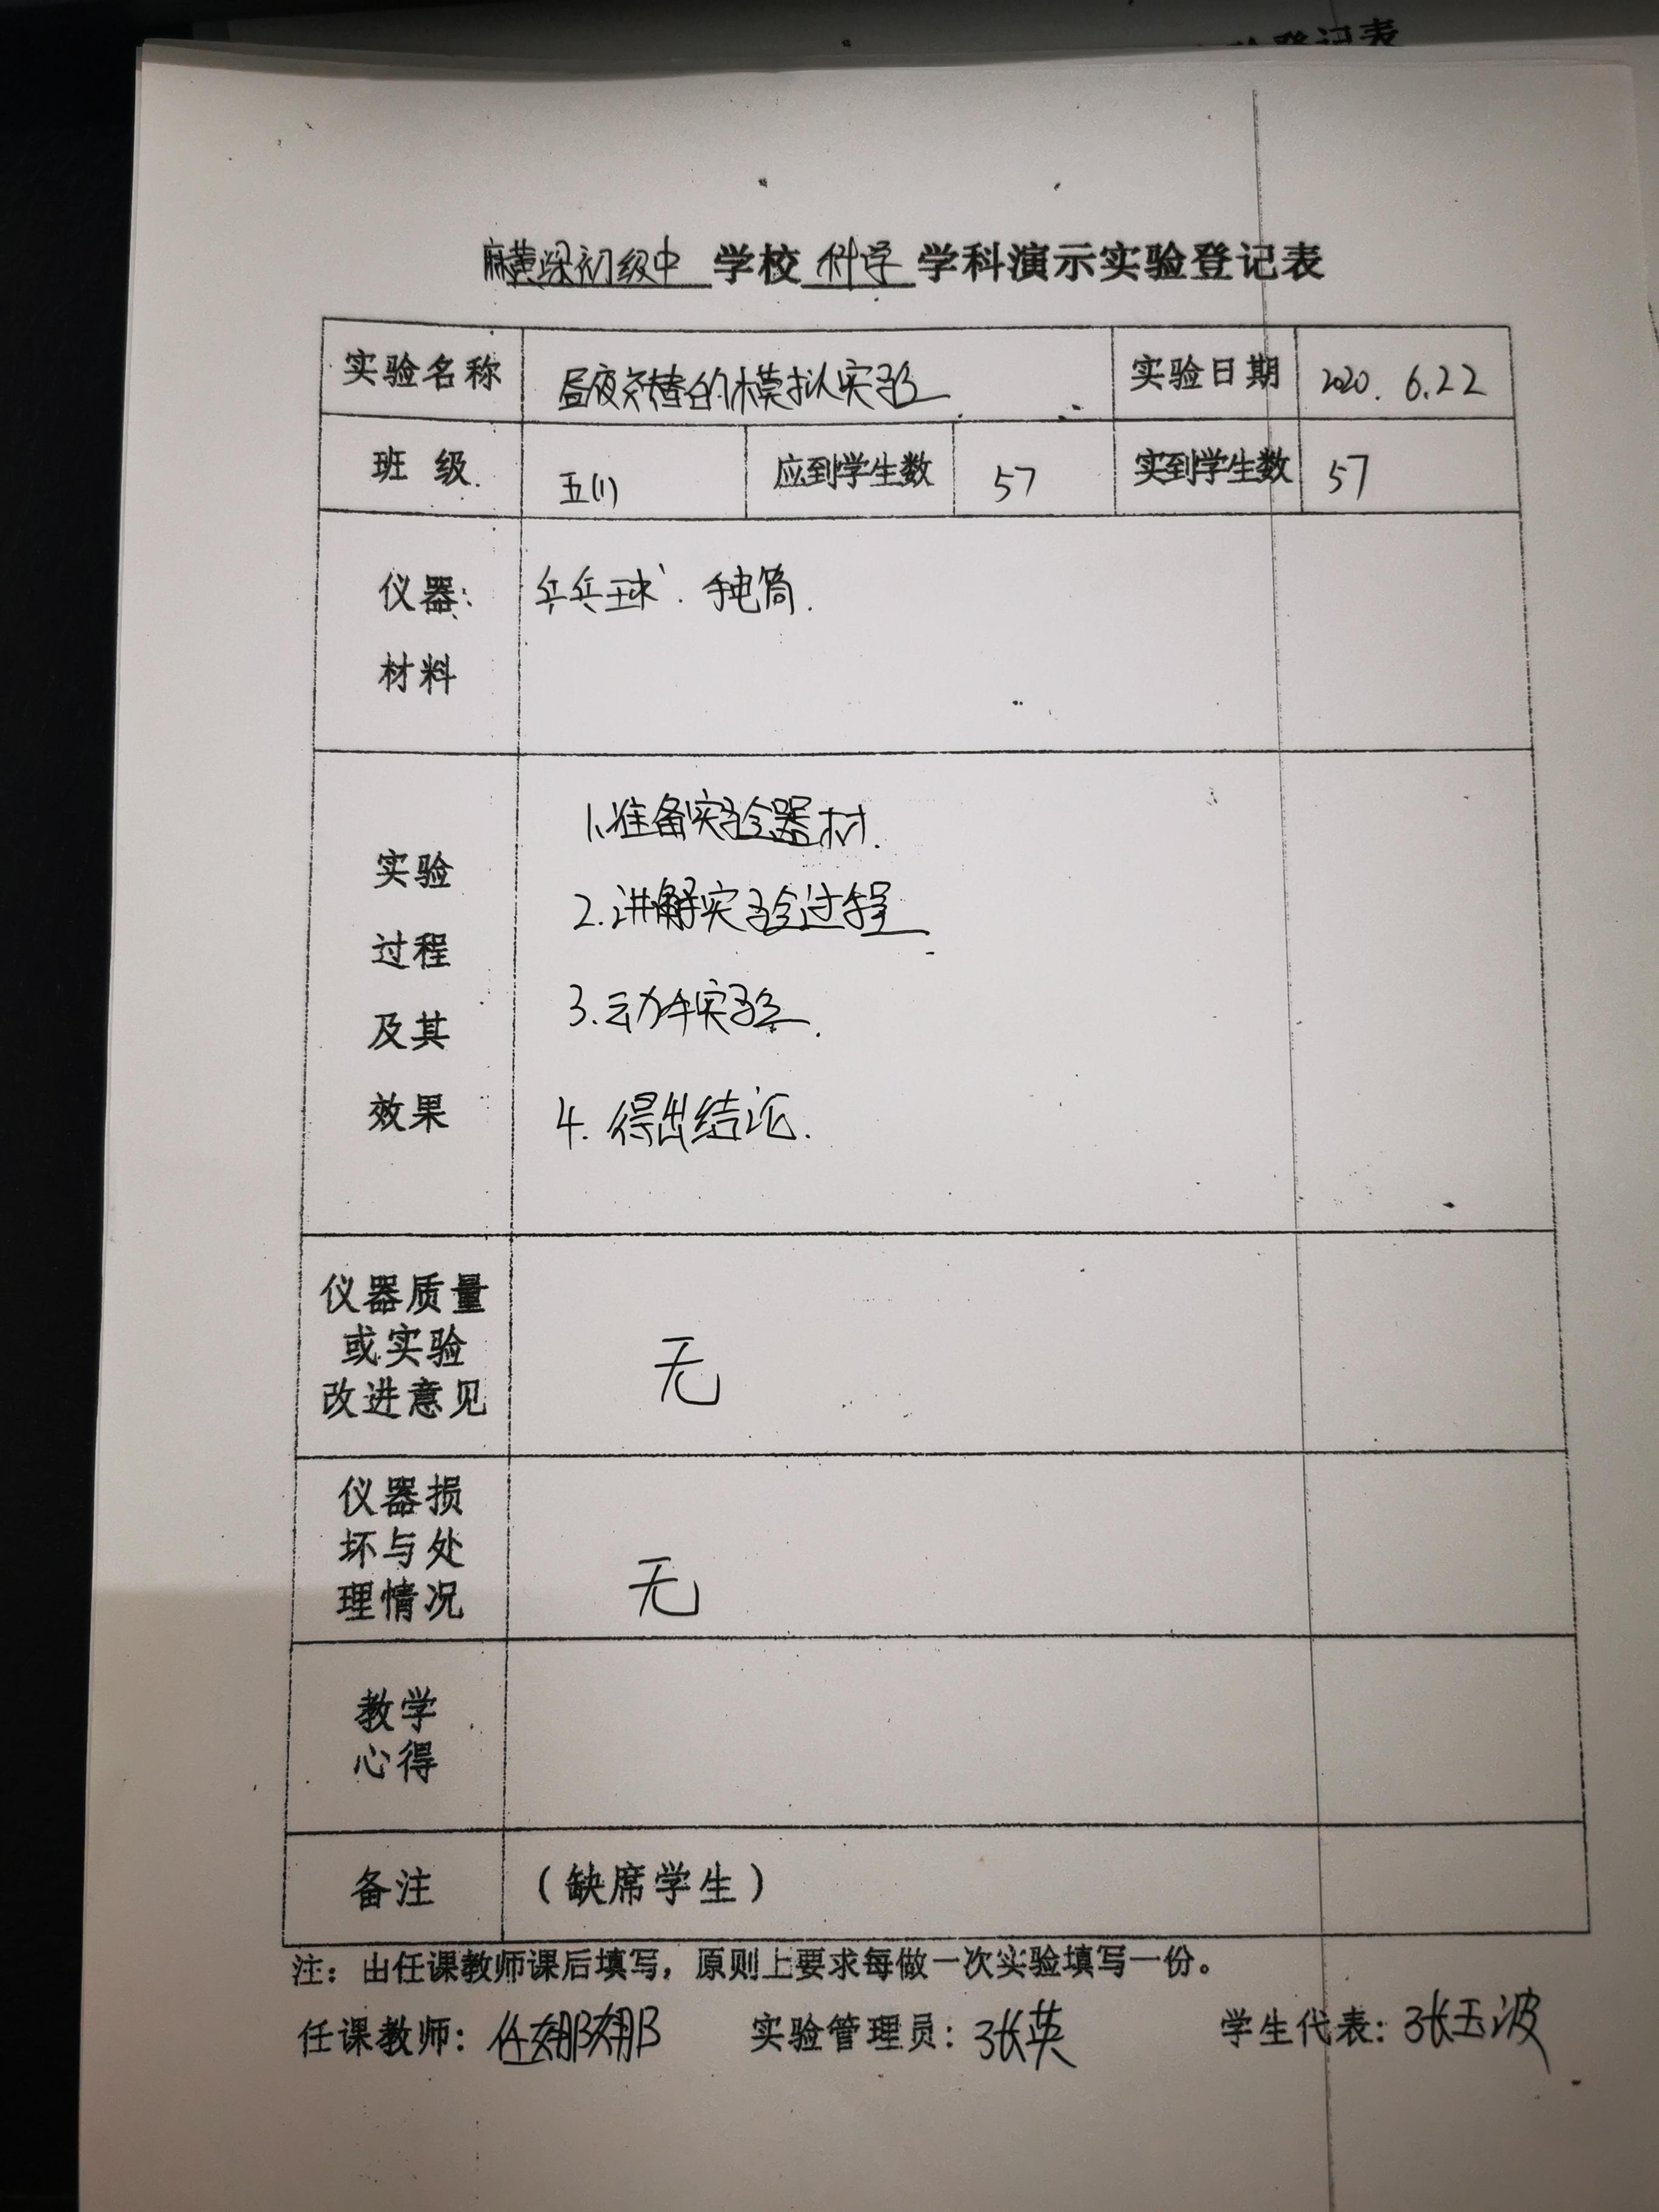 验登记表
麻黄梁初级中学校科学学科演示实验登记表
实验名称 昼夜交替的模拟实验 实验日期 2020.6.22
班级 五(1) 应到学生数 57 实到学生数 57
仪器: 乒乓球、手电筒.
材料
1.准备实验器材.
实验
2.讲解实验过程
过程
3.动手实验.
及其
效果 4.得出结论.
仪器质量
或实验 无
改进意见
仪器损
坏与处 无
理情况
教学
心得
备注 (缺席学生)
注:由任课教师课后填写,原则上要求每做一次实验填写一份。
任课教师:任娜娜 实验管理员:张英 学生代表:张玉波